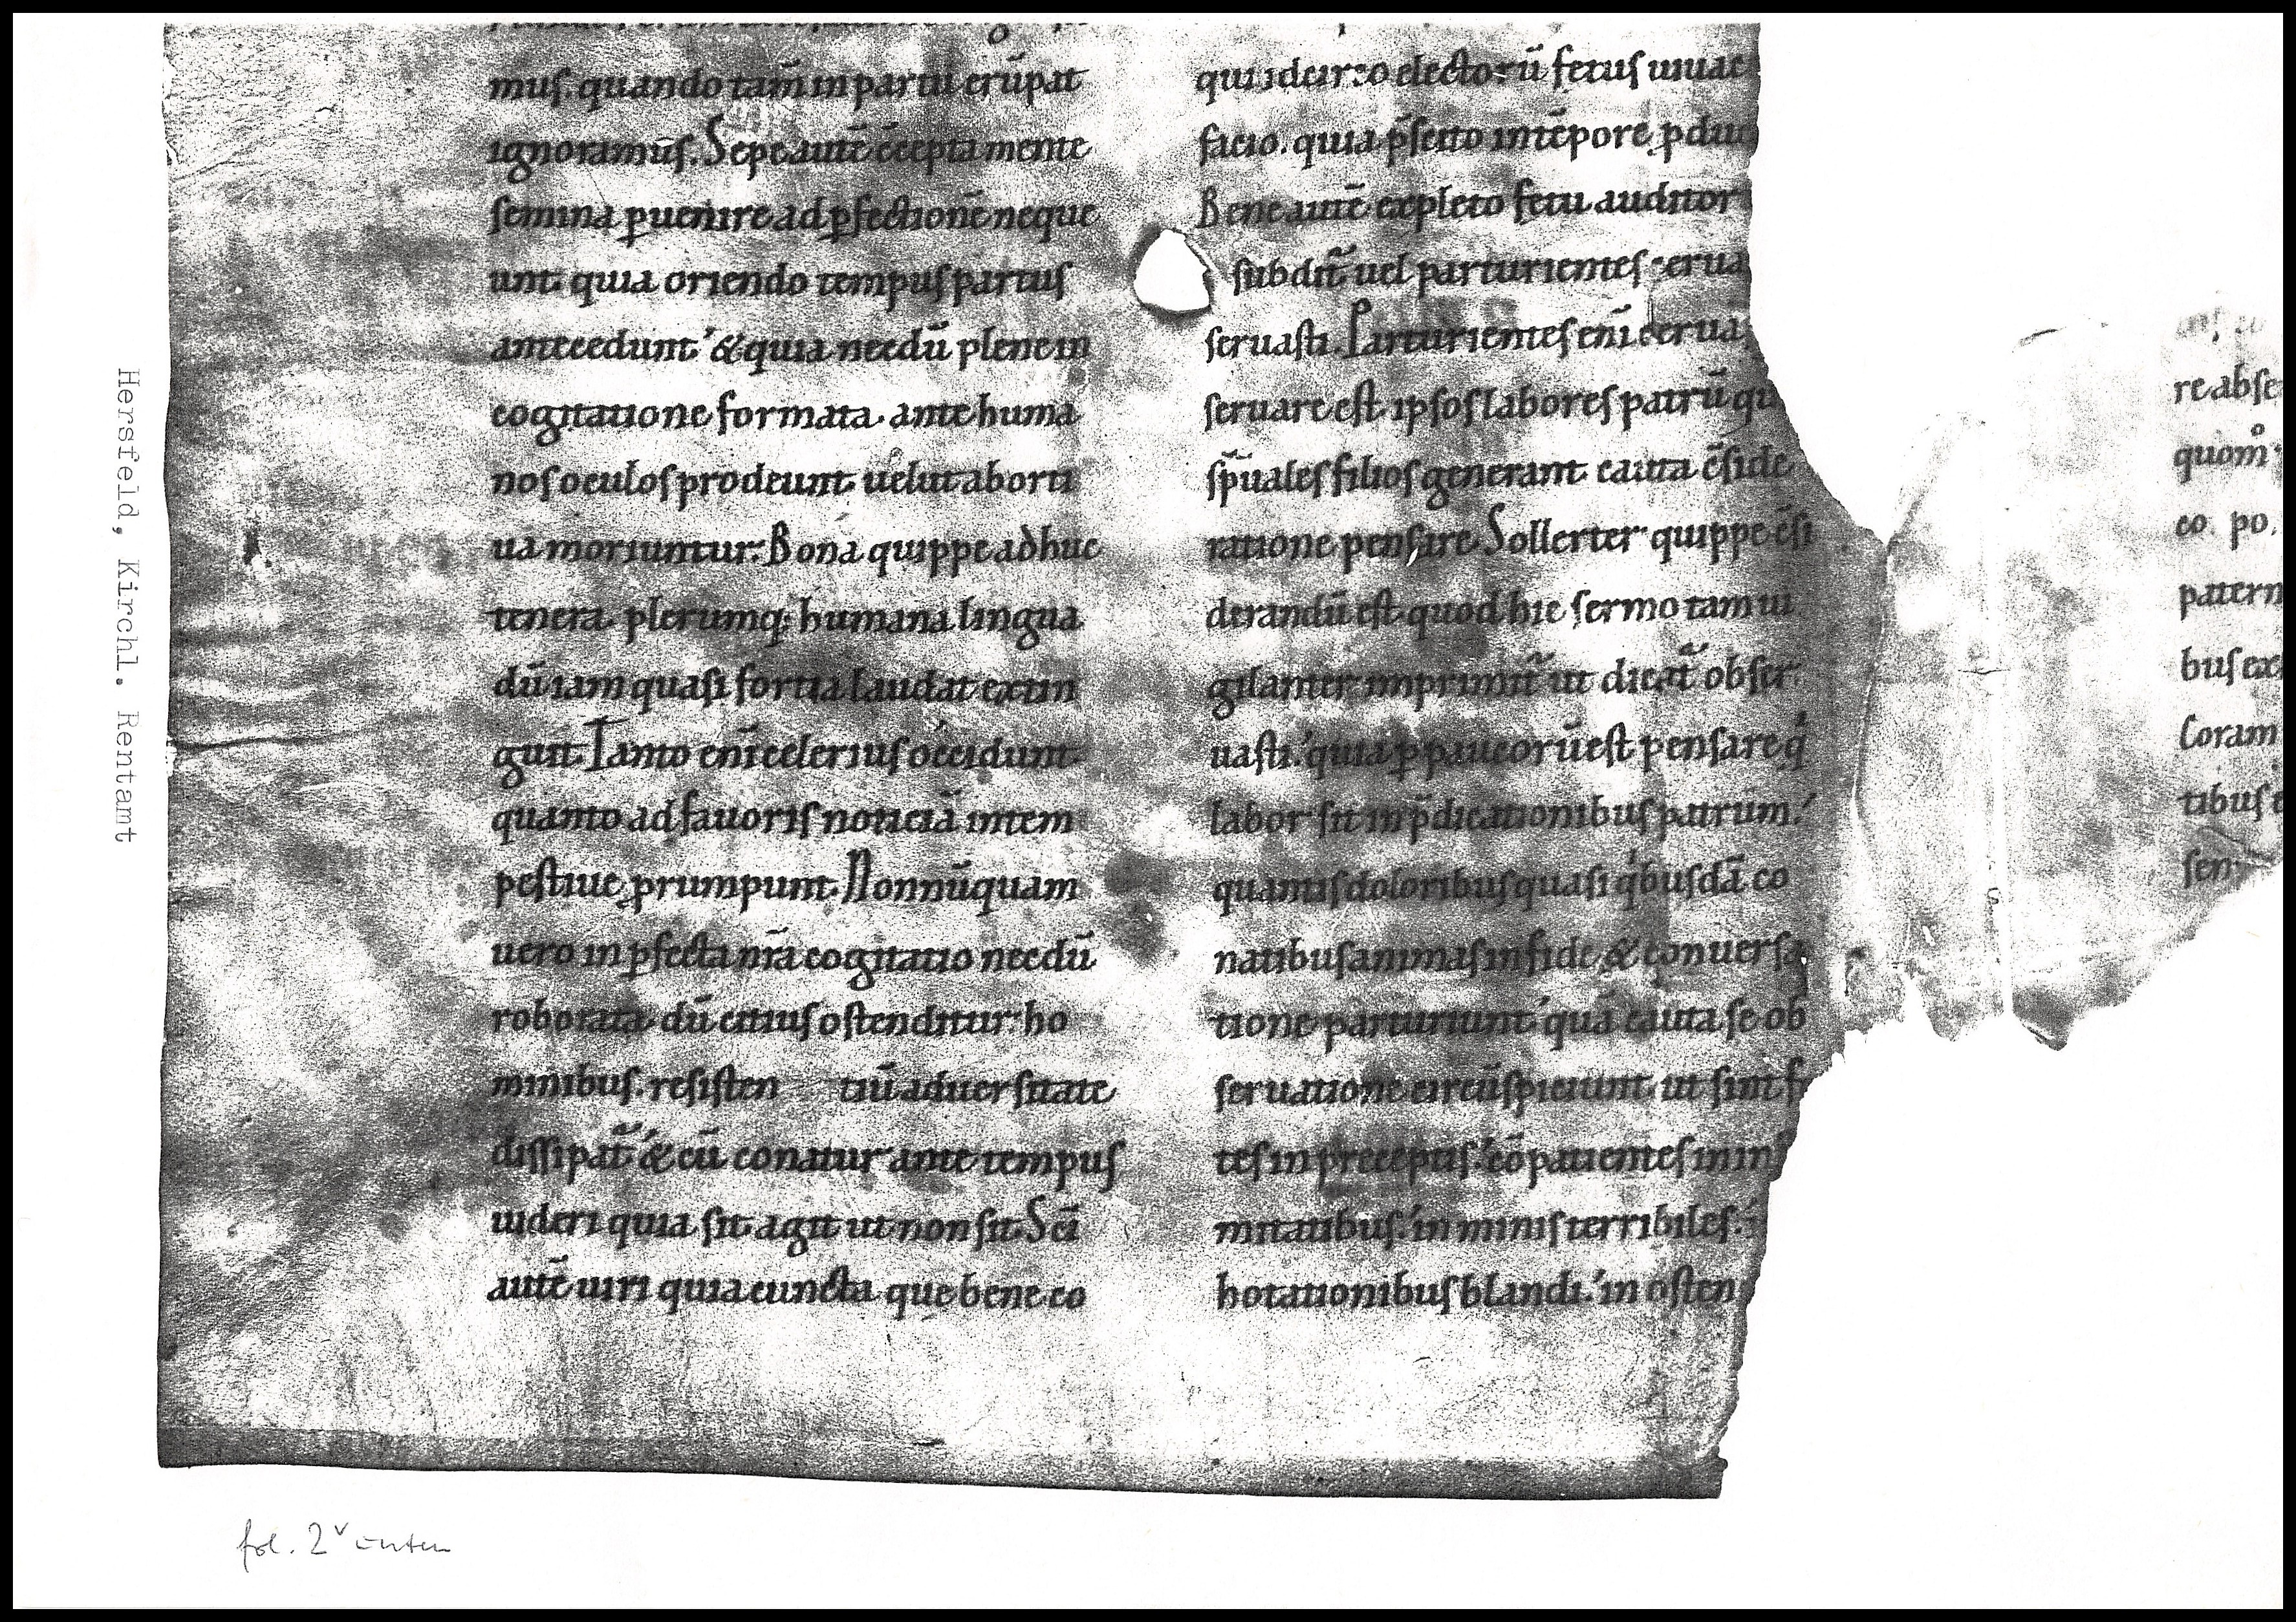 mus. quando tam̄ in partu erūpat
ignoramus. Sepe autē c̄cepta mente
semina ꝑuenire ad ꝑfectionē neque
unt. quia oriendo tempus partus
antecedunt. & quia necdū plene in
cogitatione formata. ante huma
nos oculos prodeunt. uelut aborti
ua moriuntur. Bona quippe adhuc
tenera plerumq; humana lingua
dū iam quasi fortia laudat extin
guit. Tanto eni̅ celerius occidunt
quanto ad fauoris noticiā intem
pestiue ꝓrumpunt. Nonnūquam
uero inꝑfecta nr̄a cogitatio necdū
roborata dū citius ostenditur ho
minibus. resisten tiū aduersitate
dissipat᷑. & cū conatur ante tempus
uideri quia sit. agit ut non sit. Sc̄i
autē uiri quia cuncta que bene co
qui idcirco electorū fetus uiuac
facio. quia p̄scito in tēpore ꝓduc
Bene autē expleto fetu auditor
subdit᷑. uel parturientes cerua
seruasti. Parturientes eni̅ ceruas
seruare est. ipsos labores patrū qui
sp̄uales filios generant cauta c̄side
ratione pensare. Sollerter quippe c̄si
derandū est. quod hic sermo tam ui
gilanter imprimit᷑ ut dicat᷑ obser
uasti. quia ꝑpaucorū est pensare qͥ
labor sit in p̄dicationibus patrum.
quantis doloribus quasi qͥbusdā co
natibus animas in fide & conuersa
tione parturiunt. quā cauta se ob
seruatione circūspiciunt. ut sint f
tes in preceptis. cōpatientes in in
mitatibus. in minis terribiles.
hotationibus blandi. in osten
re abse
quom̊
eo. po.
patern
bus ex
Coram
tibus
sen
Hersfeld, Kirchl. Rentamt
fol. 2v unten